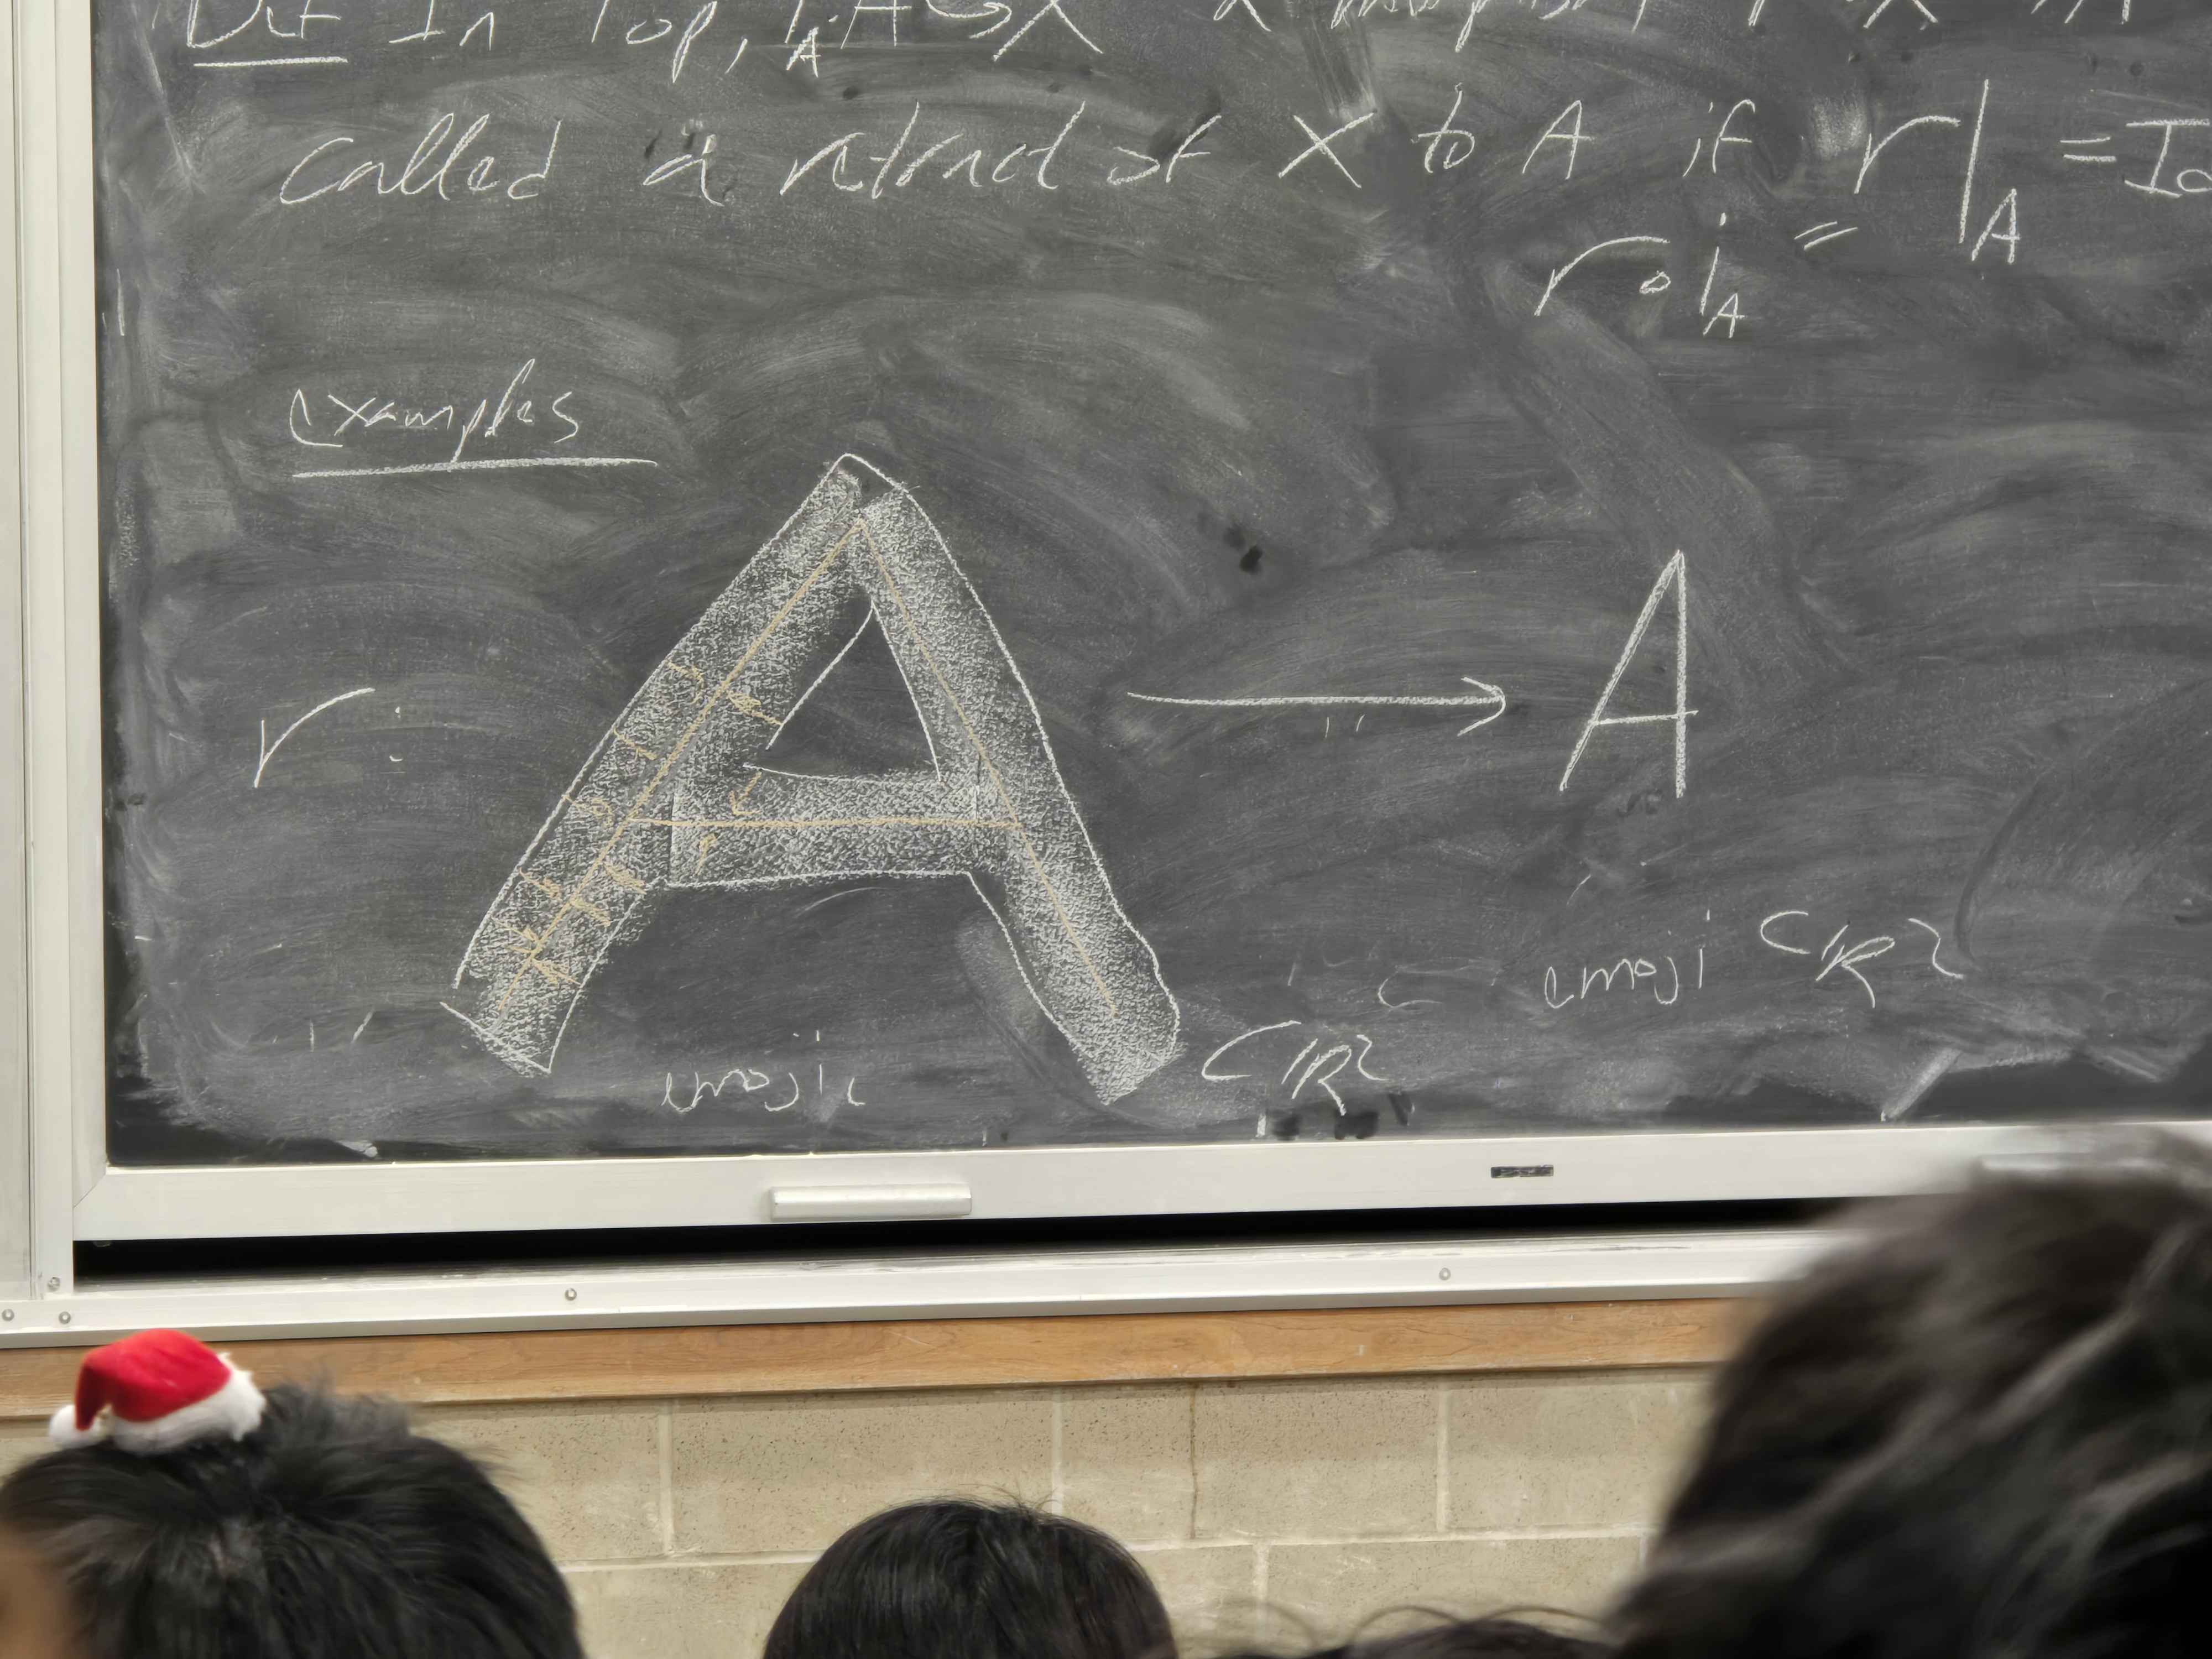 Def In Top, i_A: A ↪ X a morphism r: X → A
called a retract of X to A if r|_A = Id
r∘i_A =
examples
r: A → A
emoji ⊂ ℝ²
emoji ⊂ ℝ²